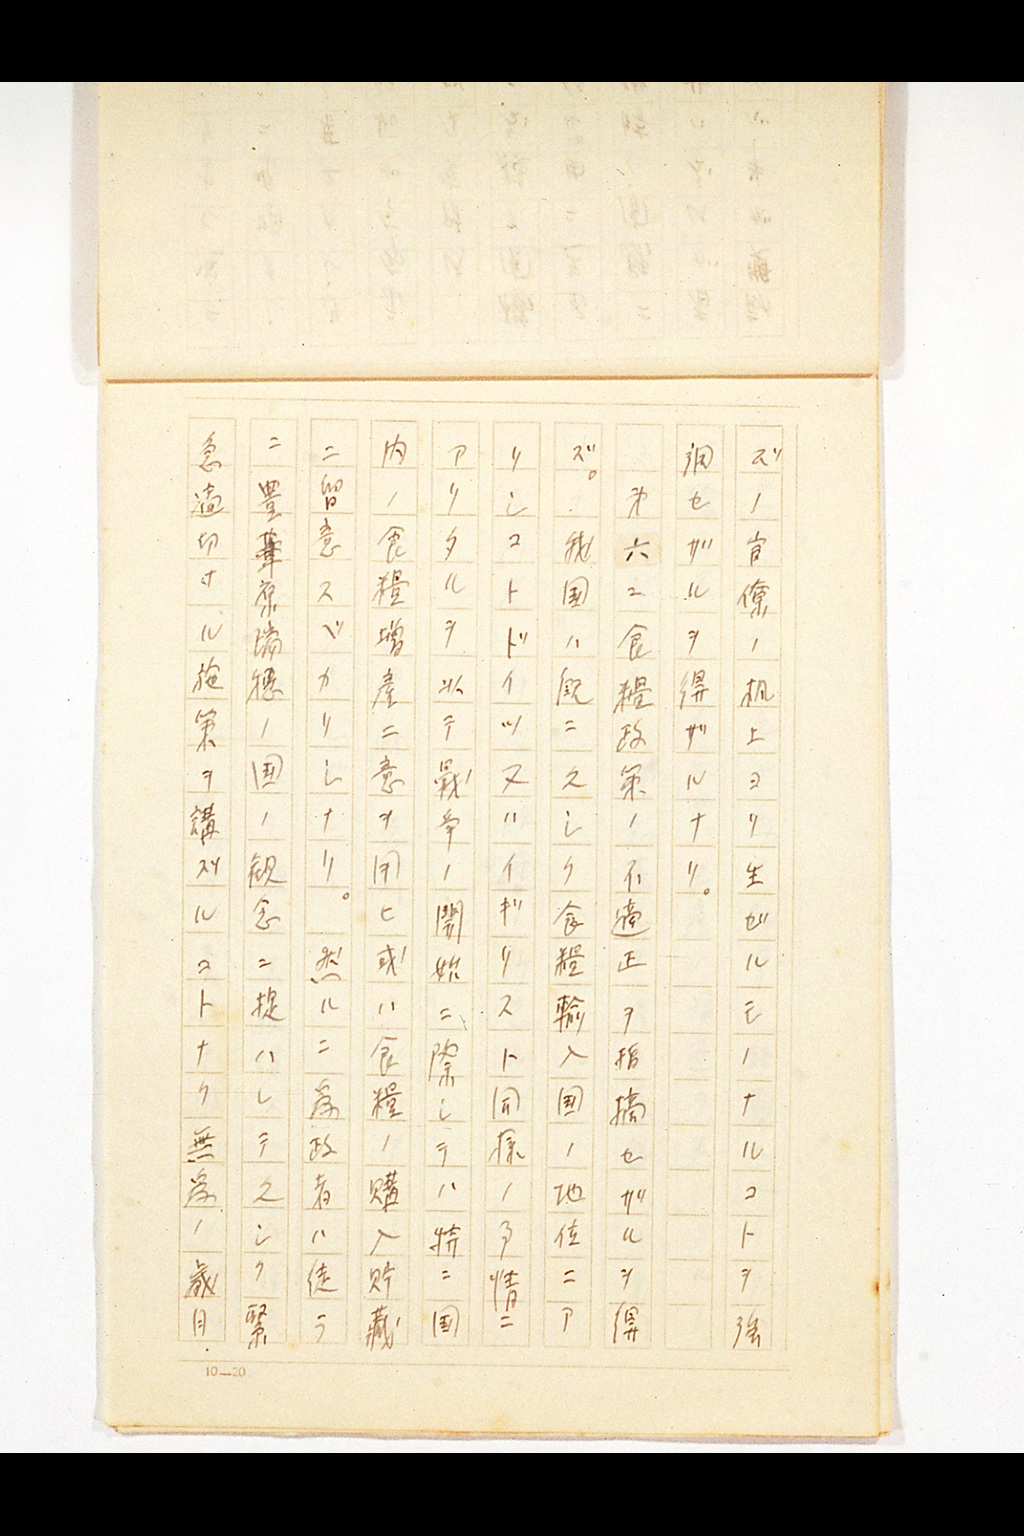 ズノ官僚ノ机上ヨリ生ゼルモノナルコトヲ強
調セザルヲ得ザルナリ。
第六ニ食糧政策ノ不適正ヲ指摘セザルヲ得
ズ。我国ハ既ニ久シク食糧輸入国ノ地位ニア
リシコトドイツ又ハイギリスト同様ノ事情ニ
アリタルヲ以テ戦争ノ開始ニ際シテハ特ニ国
内ノ食糧増産ニ意ヲ用ヒ或ハ食糧ノ購入貯蔵
ニ留意スベカリシナリ。然ルニ為政者ハ徒ラ
ニ豊葦原瑞穂ノ国ノ観念ニ捉ハレテ久シク緊
急適切ナル施策ヲ講ズルコトナク無為ノ歳月
10—20